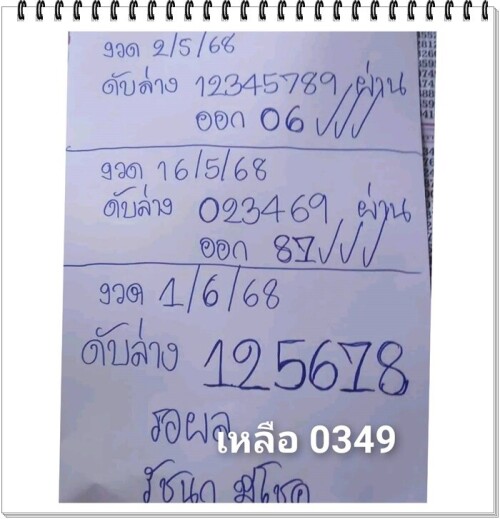 งวด 2/5/68
ดับล่าง 12345789 ผ่าน
ออก 06 ✓✓✓
งวด 16/5/68
ดับล่าง 023469 ผ่าน
ออก 87 ✓✓✓
งวด 1/6/68
ดับล่าง 125678
รอผล
เหลือ 0349
รัชนก มีโชค